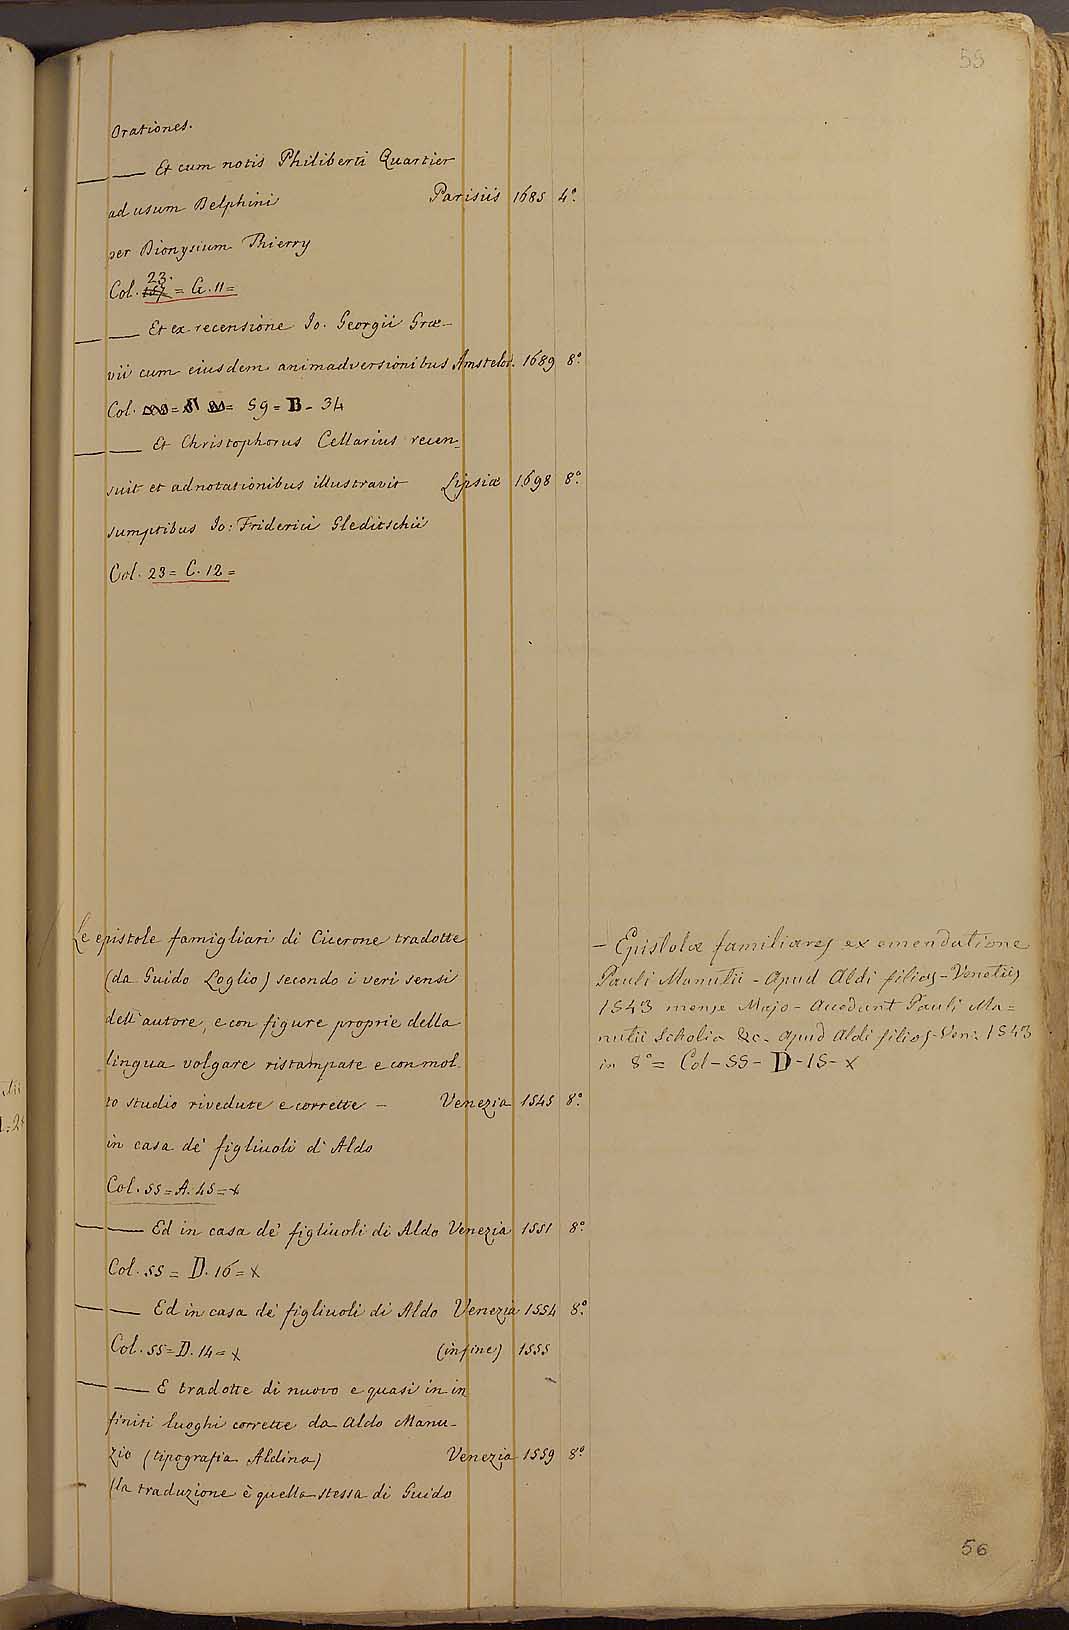 55
Orationes.
—— Et cum notis Philiberti Quartier
ad usum Delphini Parisiis 1685 4°.
per Dionysium Thierry
23.
Col. = G. 11 =
—— Et ex recensione Jo. Georgii Græ-
vii cum eiusdem animadversionibus Amstelod. 1689 8°.
Col. 59 = B - 34
—— Et Christophorus Cellarius recen-
suit et adnotationibus illustravit Lipsiæ 1698 8°.
sumptibus Jo: Friderici Gleditschii
Col. 23 = C. 12 =
Le epistole famigliari di Cicerone tradotte
(da Guido Loglio) secondo i veri sensi
dell'autore, e con figure proprie della
lingua volgare ristampate e con mol-
to studio rivedute e corrette - Venezia 1545 8°.
in casa de' figliuoli d'Aldo
Col. 55 = A. 45 = x
—— Ed in casa de' figliuoli di Aldo Venezia 1551 8°.
Col. 55 = D. 16 = x
—— Ed in casa de' figliuoli di Aldo Venezia 1554 8°.
Col. 55 = D. 14 = x (in fine) 1555
—— E tradotte di nuovo e quasi in in
finiti luoghi corrette da Aldo Manu-
zio (tipografia Aldina) Venezia 1559 8°
(la traduzione è quella stessa di Guido
- Epistolæ familiares ex emendatione
Pauli Manutii - Apud Aldi filios - Venetiis
1543 mense Majo - Accedunt Pauli Ma=
nutii Scholia &c - apud Aldi filios - Ven: 1543
in 8° = Col - 55 - D - 15 - x
56